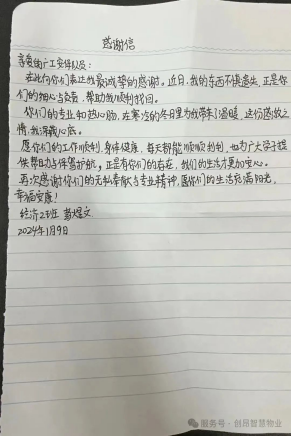 感谢信
亲爱的广工安保队：
在此向你们表达我最诚挚的感谢。近日，我的东西不慎遗失，正是你
们的细心与负责，帮助我顺利找回。
你们的专业和热心肠，在寒冷的冬日里为我带来了温暖，这份感激之
情，我深藏心底。
愿你们的工作顺利，身体健康，每天都能顺顺利利，也为广大学子提
供帮助与保驾护航。正是有你们的存在，我们的生活才更加安心。
再次感谢你们的无私奉献与专业精神，愿你们的生活充满阳光，
幸福安康！
经济2班
2024年1月9日
服务号·创昂智慧物业